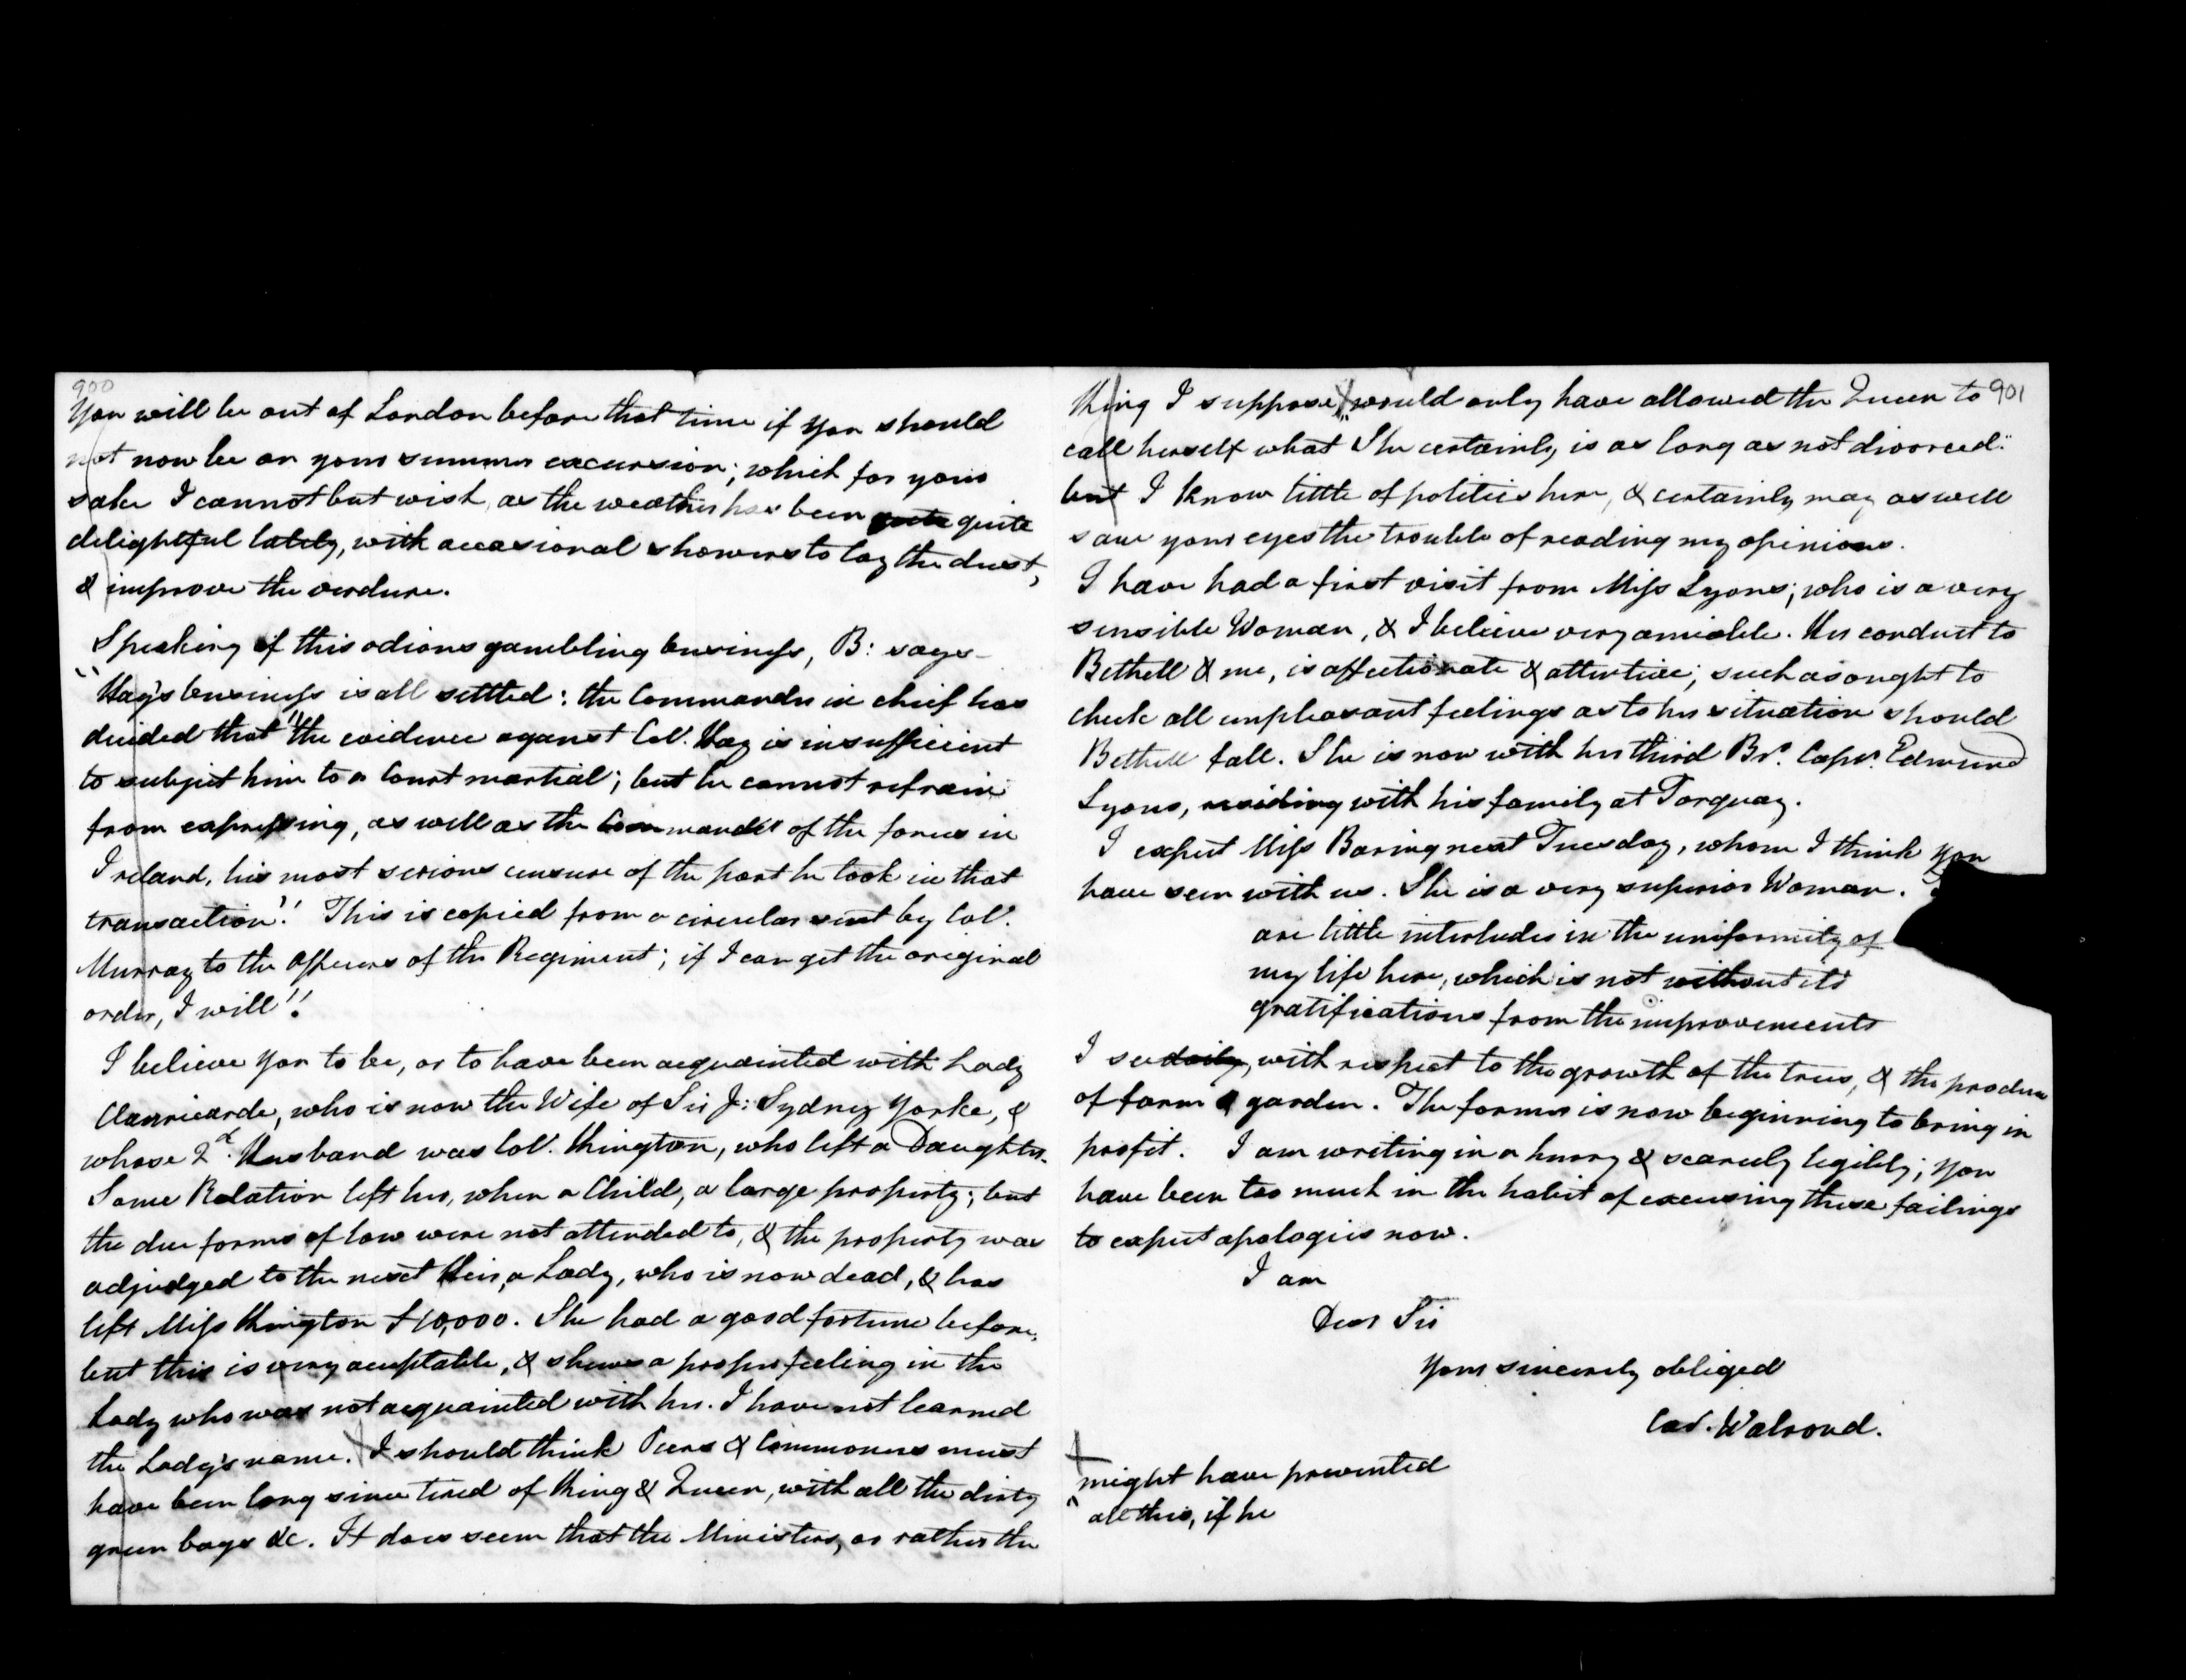 900
You will be out of London before that time if you should
not now be on your summer excursion; which for your
sake I cannot but wish, as the weather has been quite quite
delightful lately, with occasional showers to lay the dust,
& improve the verdure.
Speaking of this odious gambling business, B: says—
"Hay's business is all settled: the Commander in chief has
decided that "the evidence against Col. Hay is insufficient
to subject him to a Court martial; but he cannot refrain
from expressing, as well as the Commander of the forces in
Ireland, his most serious censure of the part he took in that
transaction"! This is copied from a circular sent by Col.
Murray to the officers of the Regiment; if I can get the original
order, I will"!
I believe you to be, or to have been acquainted with Lady
Clanricarde, who is now the Wife of Sir J: Sydney Yorke, &
whose 2d. Husband was Col. Kington, who left a Daughter.
Some Relation left her, when a Child, a large property; but
the due forms of law were not attended to, & the property was
adjudged to the next Heir, a Lady, who is now dead, & has
left Miss Kington £10,000. She had a good fortune before,
but this is very acceptable, & shews a proper feeling in the
Lady who was not acquainted with her. I have not learned
the Lady's name. I should think Peers & Commoners must
have been long since tired of King & Queen, with all the dirty
green bags &c. It does seem that the Ministers, or rather the
901
King I suppose, would only have allowed the Queen to
call herself what "She certainly is as long as not divorced."
but I know little of politics here, & certainly may as well
save your eyes the trouble of reading my opinions.
I have had a first visit from Miss Lyons; who is a very
sensible Woman, & I believe very amiable. Her conduct to
Bethell & me, is affectionate & attentive; such as ought to
check all unpleasant feelings as to her situation should
Bethell fall. She is now with her third Br. Capn. Edmund
Lyons, residing with his family at Torquay.
I expect Miss Baring next Tuesday, whom I think you
have seen with us. She is a very superior Woman.
are little interludes in the uniformity of
my life here, which is not without its
gratifications from the improvements
I see daily, with respect to the growth of the trees, & the produce
of farm & garden. The former is now beginning to bring in
profit. I am writing in a hurry & scarcely legibly; you
have been too much in the habit of excusing these failings
to expect apologies now.
I am
Dear Sir
Your sincerely obliged
Car. Walrond.
might have prevented
"all this, if he